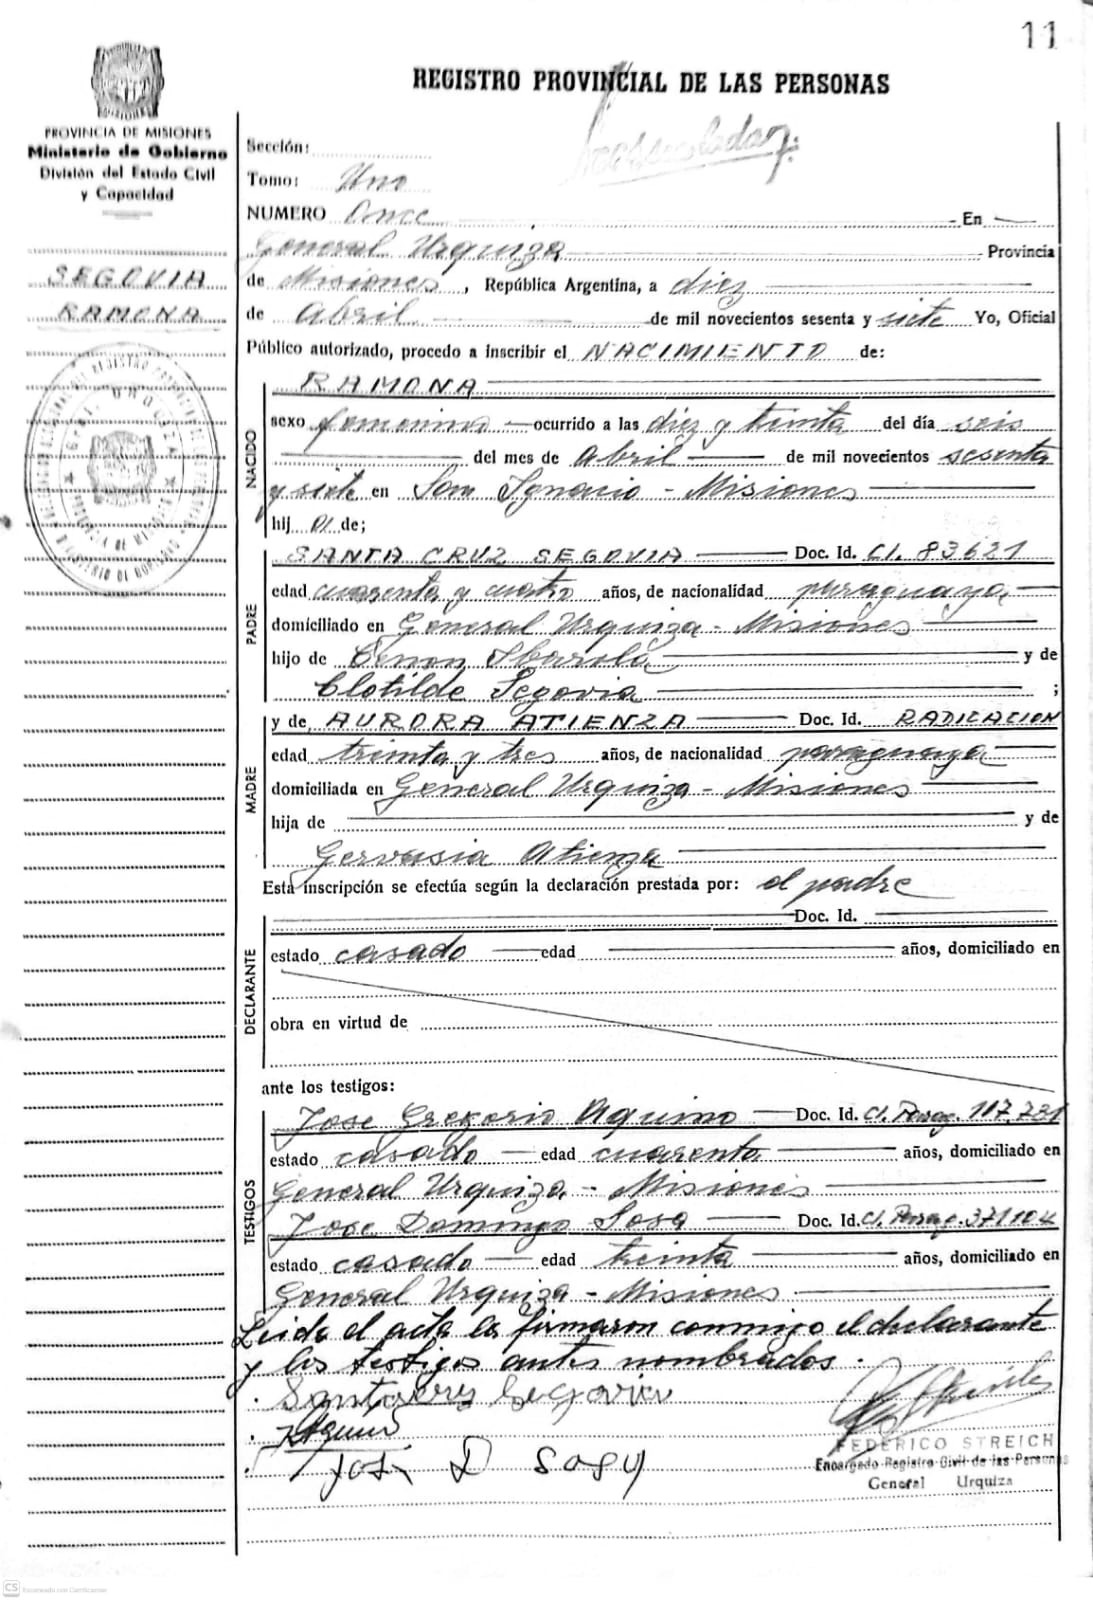 11
REGISTRO PROVINCIAL DE LAS PERSONAS
PROVINCIA DE MISIONES
Ministerio de Gobierno
División del Estado Civil
y Capacidad
SEGOVIA
RAMONA
Sección:
Tomo: Uno
NUMERO Once En
General Urquiza Provincia
de Misiones, República Argentina, a diez
de Abril de mil novecientos sesenta y siete Yo, Oficial
Público autorizado, procedo a inscribir el NACIMIENTO de:
NACIDO
RAMONA
sexo femenino ocurrido a las diez y treinta del día seis
del mes de Abril de mil novecientos sesenta
y siete en San Ignacio - Misiones
hij a de;
PADRE
SANTA CRUZ SEGOVIA Doc. Id. CI. 83621
edad cuarenta y cuatro años, de nacionalidad paraguaya
domiciliado en General Urquiza - Misiones
hijo de Cenon Ibarrola y de
Clotilde Segovia ;
MADRE
y de AURORA ATIENZA Doc. Id. RADICACION
edad treinta y tres años, de nacionalidad paraguaya
domiciliada en General Urquiza - Misiones
hija de y de
Gervasia Atienza
Esta inscripción se efectúa según la declaración prestada por: el padre
DECLARANTE
Doc. Id.
estado casado edad años, domiciliado en
obra en virtud de
ante los testigos:
TESTIGOS
Jose Gregorio Aquino Doc. Id. CI. Parag. 117.731
estado casado edad cuarenta años, domiciliado en
General Urquiza - Misiones
Jose Domingo Sosa Doc. Id. CI. Parag. 371104
estado casado edad treinta años, domiciliado en
General Urquiza - Misiones
Leida el acta la firmaron conmigo el declarante
y los testigos antes nombrados.
Santacruz Segovia
JAquino
José D Sosa
FEDERICO STREICH
Encargado Registro Civil de las Personas
General Urquiza
CS Escaneado con CamScanner